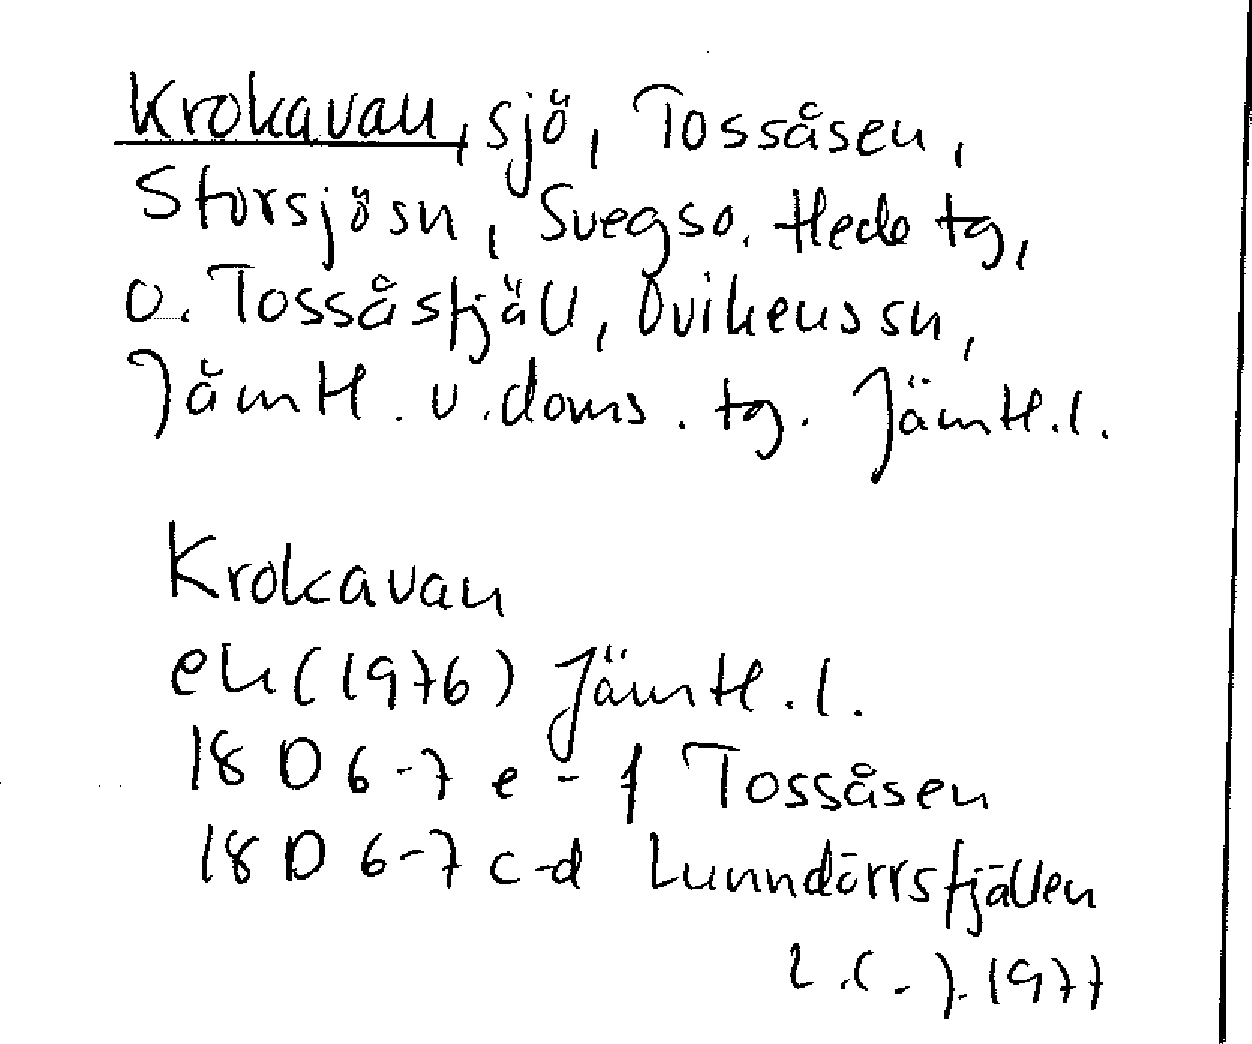 Krokavan, sjö, Tossåsen,
Storsjösn, Svegs o. Hede tg,
o. Tossåsfjäll, Ovikens sn,
Jämtl. v. doms. tg. Jämtl. l.
Krokavan
ek (1976) Jämtl. l.
18 D 6-7 e - f Tossåsen
18 D 6-7 c-d Lunndörrsfjällen
1977